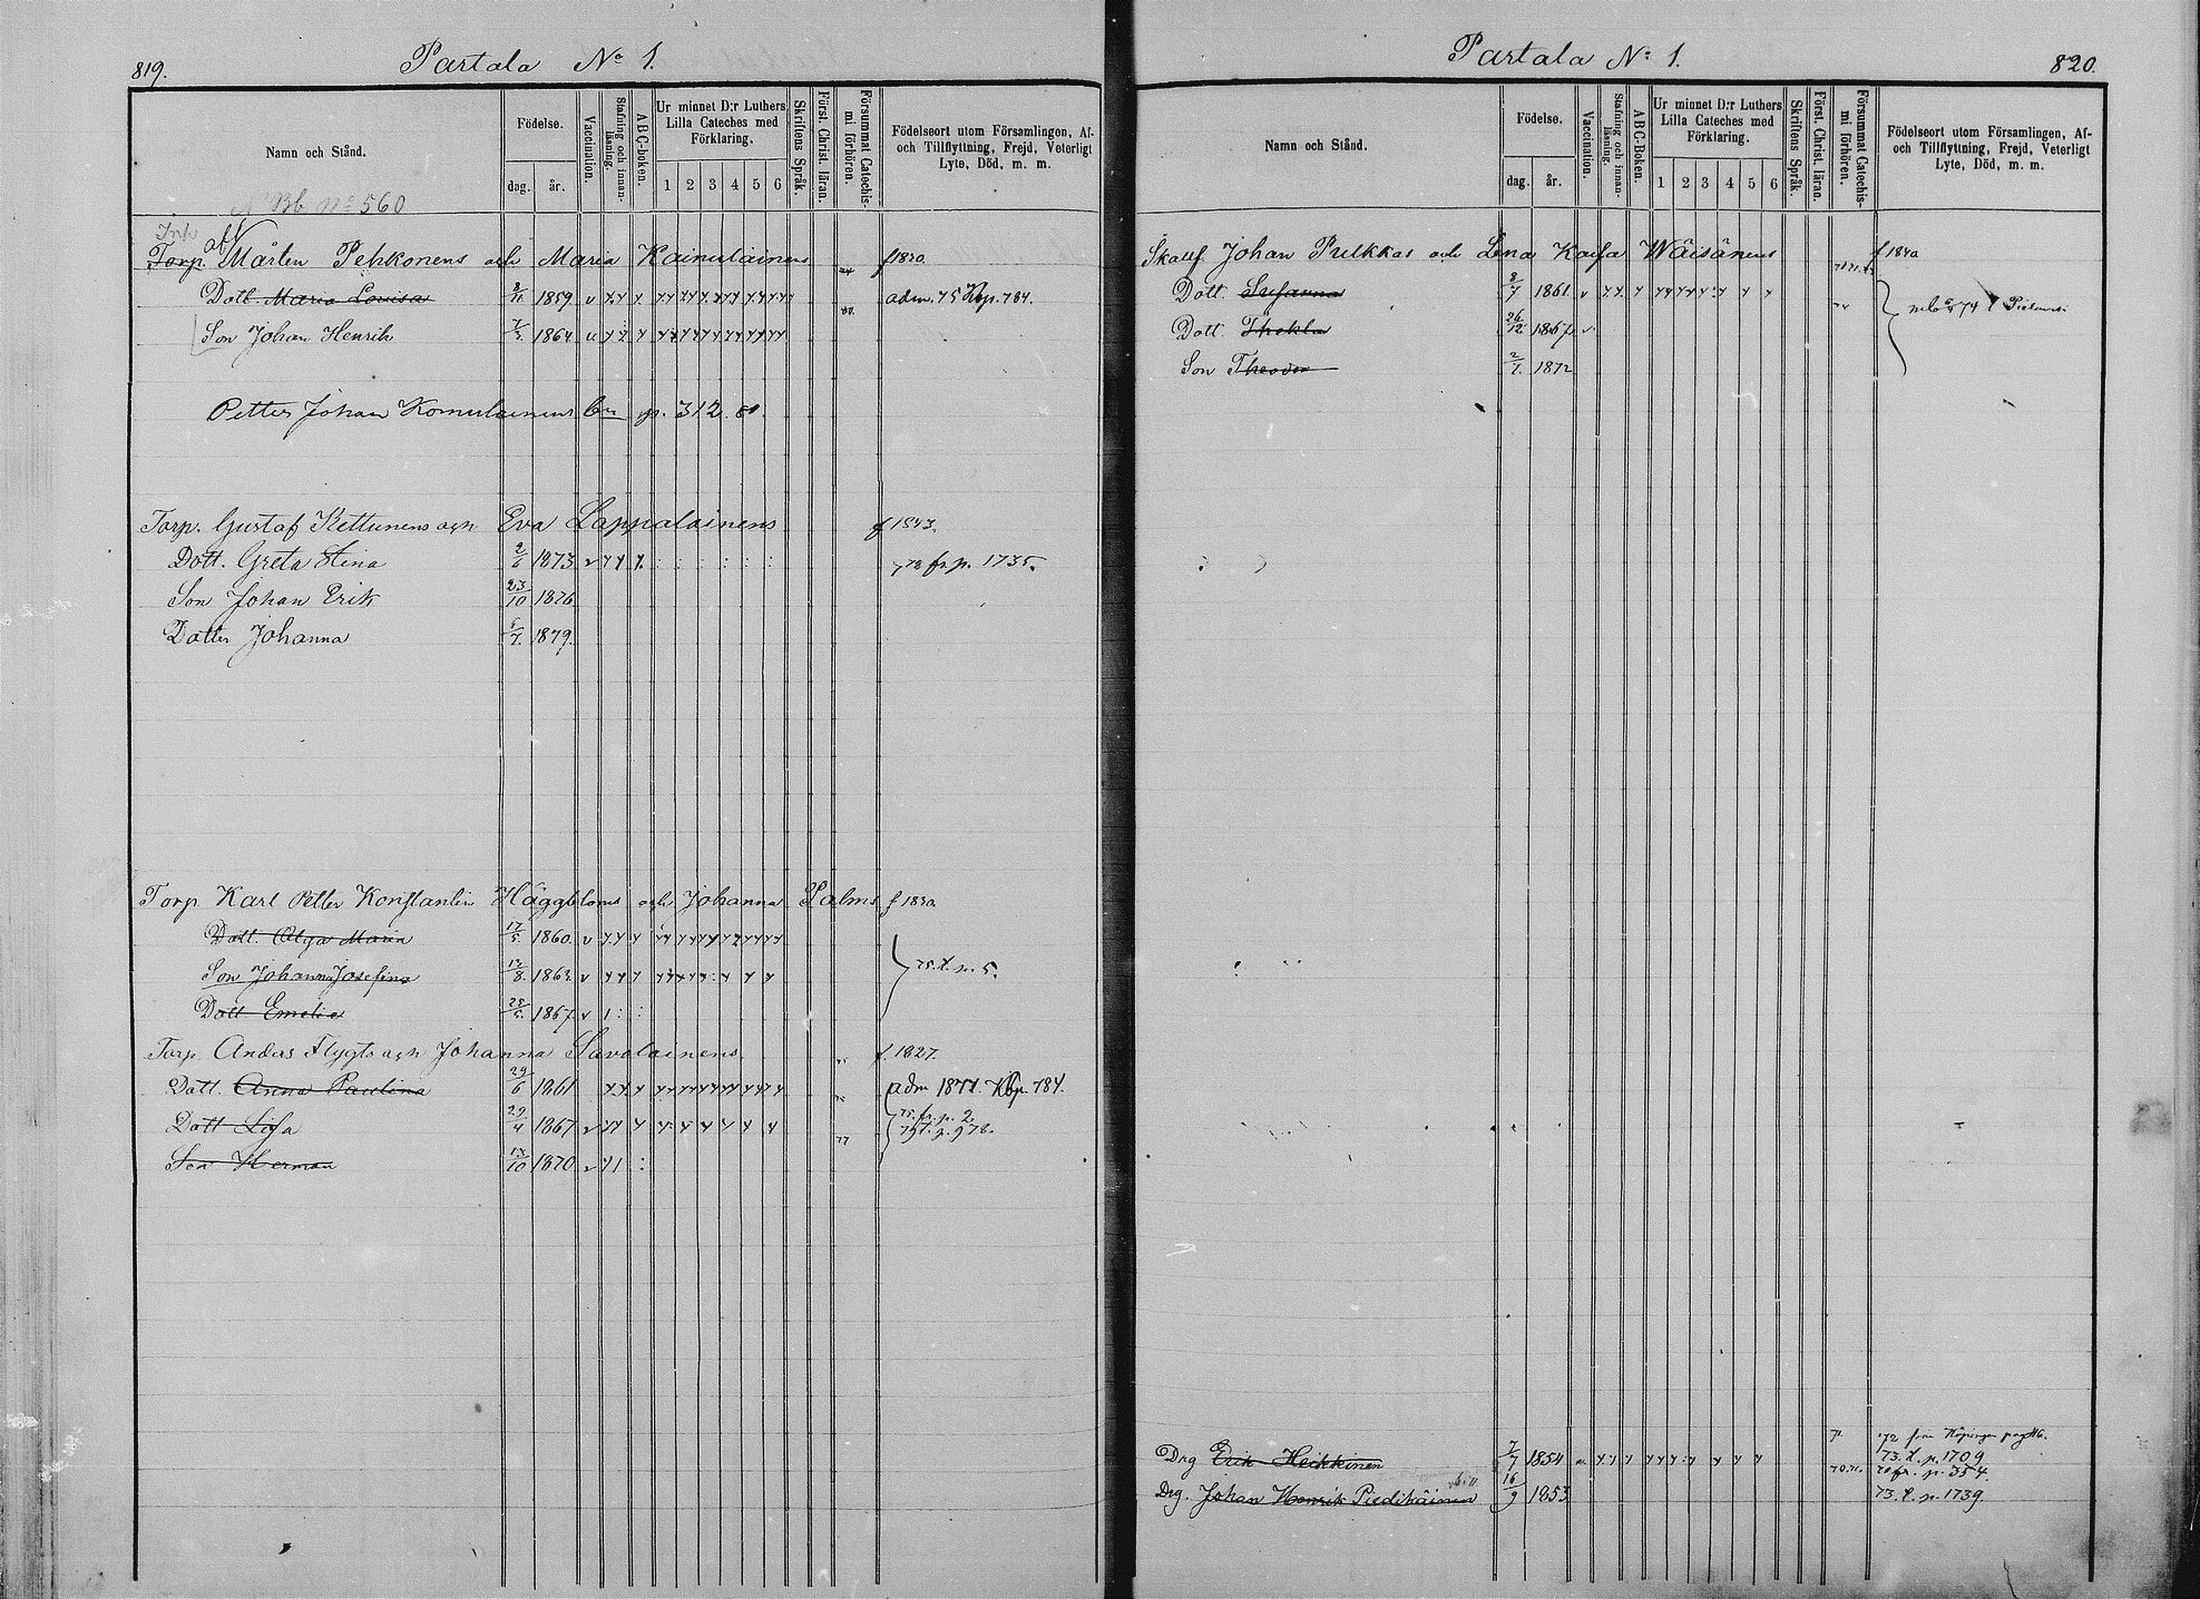 819.
Partala No 1.
Namn och Stånd.
Födelse.
dag.
år.
Vaccination.
Stafning och innanläsning.
ABC-boken.
Ur minnet D:r Luthers
Lilla Cateches med
Förklaring.
1 2 3 4 5 6
Skriftens Språk.
Först. Christ. läran.
Försummat Catechismi förhören.
Födelseort utom Församlingen, Af-
och Tillflyttning, Frejd, Veterligt
Lyte, Död, m. m.
Bb No 560
Inh
af
Torp. Mårten Pehkonens och Maria Kainulainens f 1830
Dott. Maria Lovisa 1859 v adm. 75 Kbp. 784.
Son Johan Henrik 1864
Petter Johan Komulainens p. 312.
Torp. Gustaf Kettunens och Eva Lappalainens f 1843.
Dott. Greta Stina 2/6 1873 v 78 fr. p. 1735.
Son Johan Erik 23/10 1876
Dotter Johanna 1879.
Torp Karl Petter Konstantin Häggbloms och Johanna Palms f 1830
Dott. Olga Maria 17/5 1860 v
Son Johanna Josefina 1863 v 75. t. p. 5.
Dott Emelie 1867 v
Torp. Anders Flygts och Johanna Savolainens f. 1827.
Dott. Anna Paulina 29/6 1861 adm 1877. Kbp. 784.
Dott Lisa 29/4 1867 v 75. fr. p. 2.
Son Herman 13/10 1870 v
Partala No 1.
820.
Namn och Stånd.
Födelse.
dag.
år.
Vaccination.
Stafning och innanläsning.
ABC-Boken.
Ur minnet D:r Luthers
Lilla Cateches med
Förklaring.
1 2 3 4 5 6
Skriftens Språk.
Först. Christ. läran.
Försummat Catechismi förhören.
Födelseort utom Församlingen, Af-
och Tillflyttning, Frejd, Veterligt
Lyte, Död, m. m.
Johan Pulkkas och Lena Kaisa Wäisänens f 1840
Dott. Susanna 8/7 1861 v
Dott. Thekla 26/12 1867 v
Son Theodor 2/7 1872
Drg Erik Heikkinen 7/7 1854 '72 från Köpingen pag 46.
73. t. p. 1709
Drg. Johan Henrik Piedikäinen 16/9 1853 70 fr. p. 354.
73. t. p. 1739.